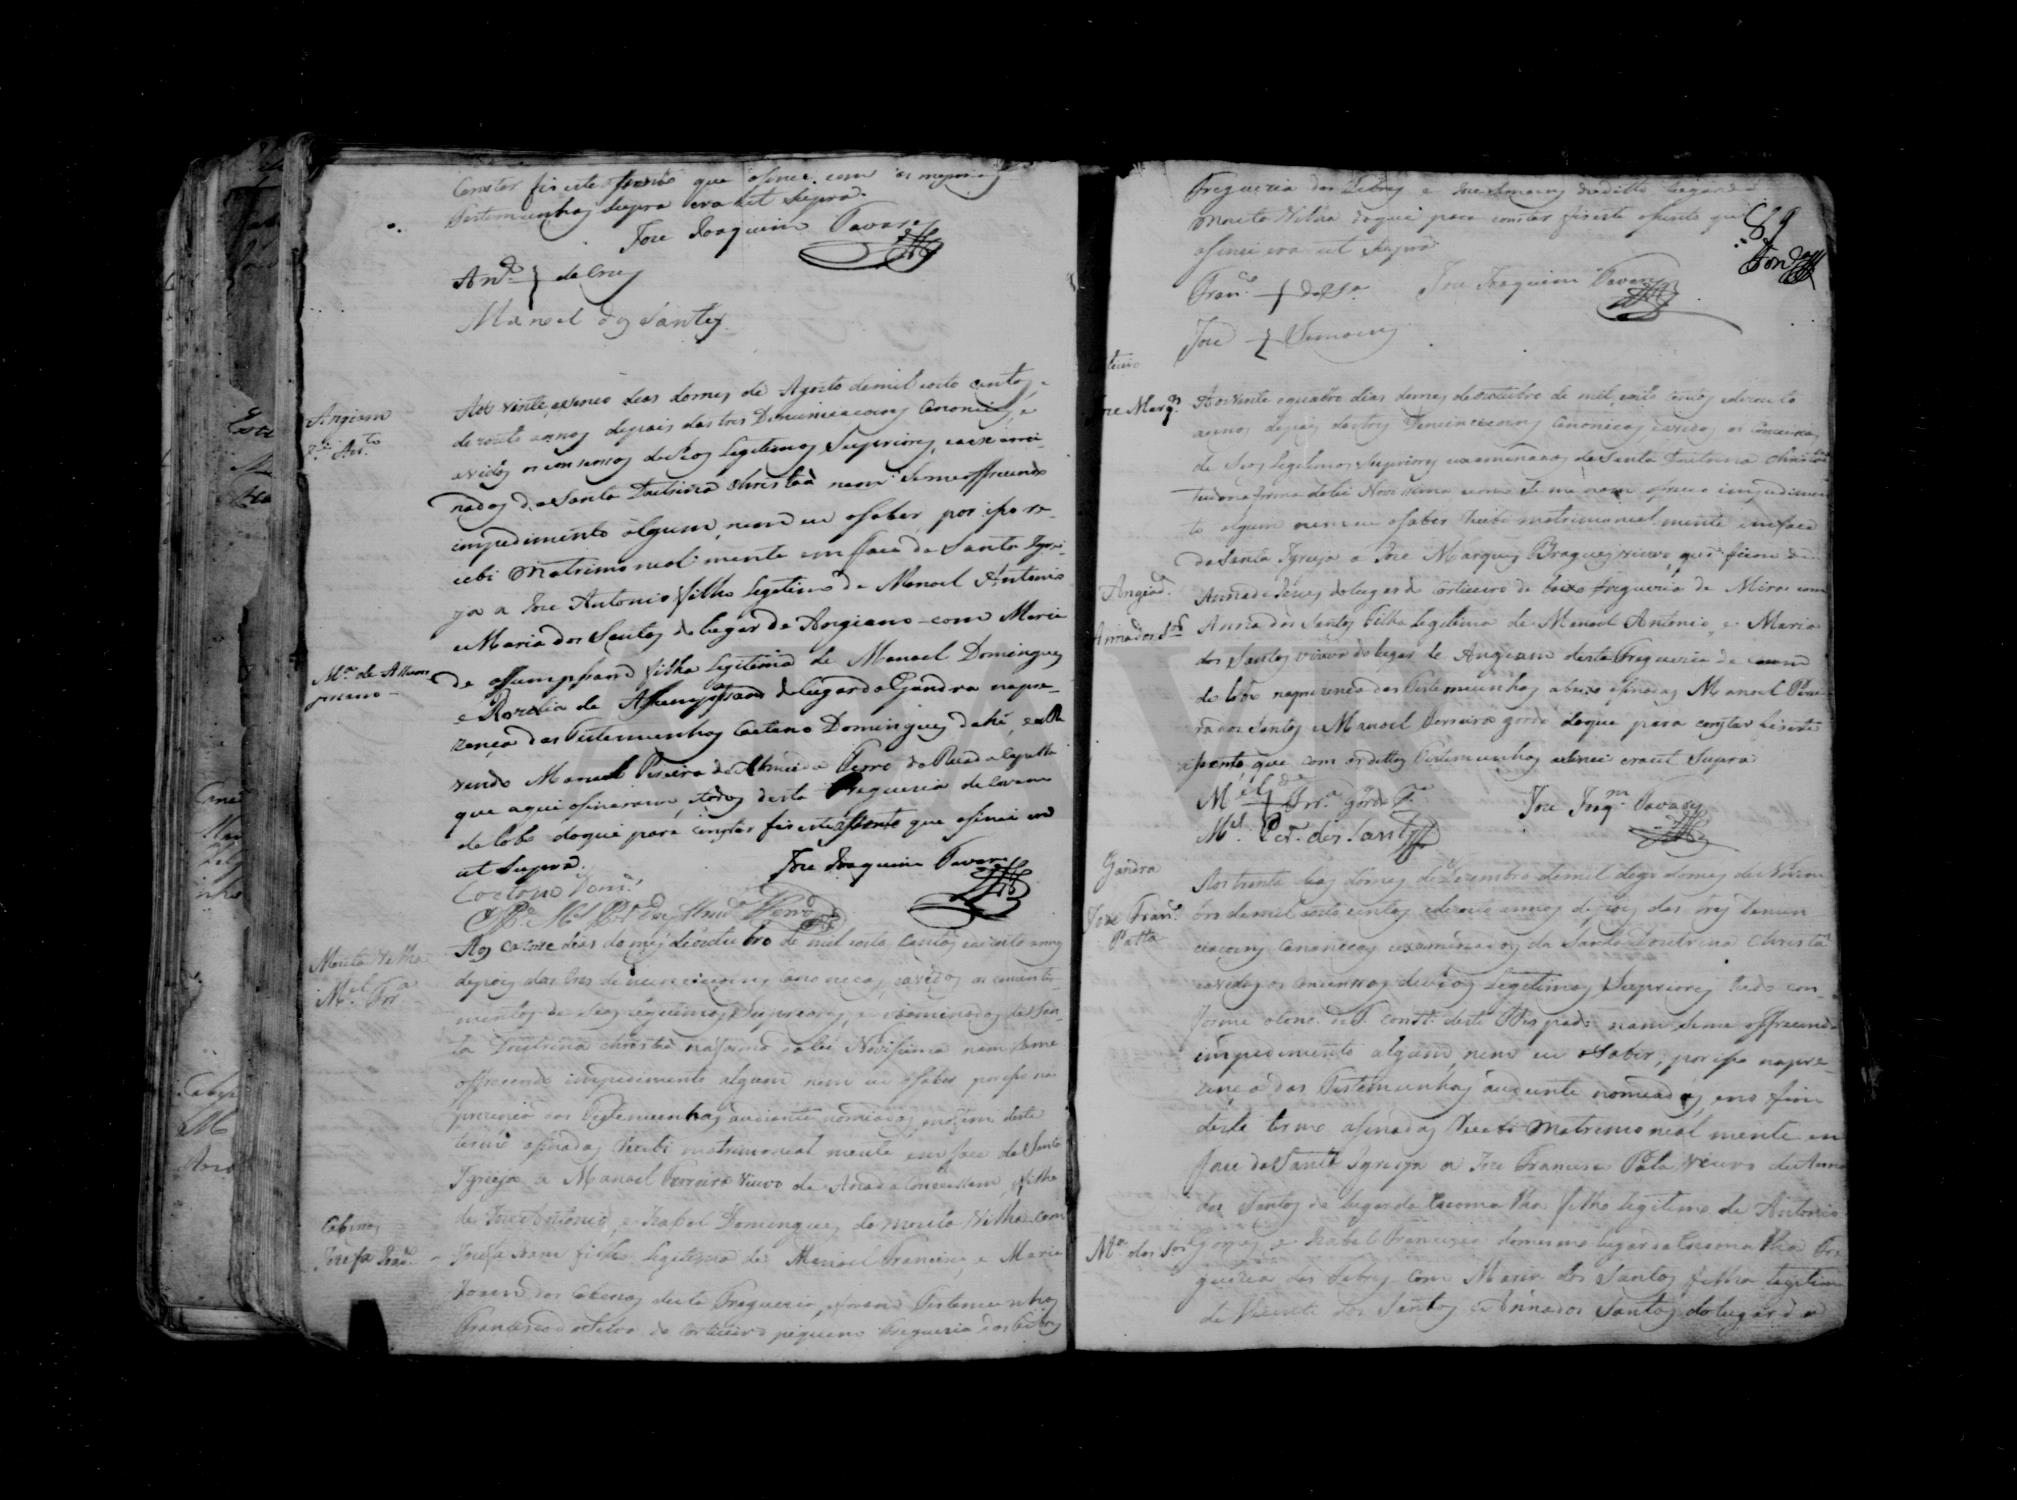 Constar fis este asento que asinei com as mesmas
Testemunhas supra era ut supra.
Joze Joaquim Tavares
Anto. da Cruz
Manoel dos Santos
Angiam
Je. Anto.
Aos vinte e sinco dias do mes de Agosto de mil oito centos, e
dezouto annos depois das tres Denunciacoens Canonicas, e
avidos os consensos de seos legitimos Superiores, e exami-
nados da Santa Doutrina Christãa nam se me offrecendo
impedimento algum, nem eu o saber, por iso re-
cebi Matrimonial mente em face da Santa Igre-
ja a Joze Antonio filho legitimo de Manoel Antonio
e Maria dos Santos do lugar de Angiano com Maria
Ma. de Assum-
psam
de Assumpsam filha legitima de Manoel Domingues
e Rozalia de Assumpsam do lugar da Gandra na pre-
zença das Testemunhas Caetano Domingues dahi, e o Re-
verendo Manoel Pereira de Almeida Ferro da
que aqui asinaram, todos desta Freguezia de Covam
de lobo do que para constar fis este asento que asinei era
ut supra.
Joze Joaquim Tavares
Caetano Domes.
Pe. Mel. Pra. de Almda. Ferro
Mouta Velha
Mel. Frra.
Aos catorze dias do mes de Outubro de mil oito centos e dezoito annos
depois das tres denunciacoens canonecas, avidos os consenti-
mentos de seos legitimos Superiores, e examinados da San-
ta Doutrina christãa na forma da lei Novissima nam se me
offrecendo impedimento algum nem eu o saber por iso na
prezença das Testemunhas ao diante nomiadas, no fim deste
termo asinadas Recebi matrimonial mente em face da Santa
Igreja a Manoel Ferreira Viuvo de Anna da Conceissam, filho
de Joze Antonio, e Izabel Domingues, da Mouta Velha com
Cabeços
Jozefa Joam
Jozefa Joam filha legitima de Manoel Francisco, e Maria
Joam dos Cabeços desta Freguezia, foram Testemunhas
Francisco da Silva do Corticeiro piqueno Freguezia das Febres
Freguezia das Febres e Joze Simoens do ditto lugar da
Mouta Velha do que para constar fis este asento que
asinei era ut supra
89
Franco. da Sa.
Joze Joaquim Tavares
Joze Simoens
Joze Marqs.
Aos vinte e quatro dias do mes de Outubro de mil, oito centos e dezouto
annos depois das tres Denunciacoens Canonicas, avidos os Consensos
de seos legitimos Superiores examinados da Santa Doutrina Christãa
tudo na forma da lei Novissima e como se me nam ofreceo impedimen-
to algum nem eu o saber Recebi matrimonial mente em face
da Santa Igreja a Joze Marques Bragues viuvo, que ficou de
Angiam
Anna dos Stos.
Anna de Jezus do lugar do Corticeiro de baixo freguezia de Mira com
Anna dos Santos filha legitima de Manoel Antonio, e Maria
dos Santos viuva do lugar de Angiam desta Freguezia de Covam
de lobo na prezença das Testemunhas abaixo asinadas Manoel Perei-
ra dos Santos e Manoel Ferreira gordo do que para constar fis este
asento que com as dittas Testemunhas asinei era ut supra
Mel. Frra. Gordo
Joze Joaqm. Tavares
Mel. Per. dos Santos
Gandra
Joze Franco.
Patta
Aos trinta dias do mes de Dezembro de mil digo do mes de Novem-
bro de mil oito centos e dezoito annos depois das tres Denun-
ciacoens Canonecas, examinados da Santa Doutrina Christãa
avidos os consensos de seos legitimos Superiores tudo con-
forme a Const. deste Bispado nam se me offrecendo
impedimento algum, nem eu o saber, por iso na pre-
zença das Testemunhas ao diante nomeadas, e no fim
deste termo asinadas Recebi Matrimonial mente em
face da Santa Igreja a Joze Francisco Pata Viuvo de Anna
dos Santos do lugar da filho legitimo de Antonio
Ma. dos Stos.
Gomes, e Izabel Francisca do mesmo lugar da Fre-
guezia das Febres com Maria dos Santos filha legitima
de Vicente dos Santos e Anna dos Santos do lugar da